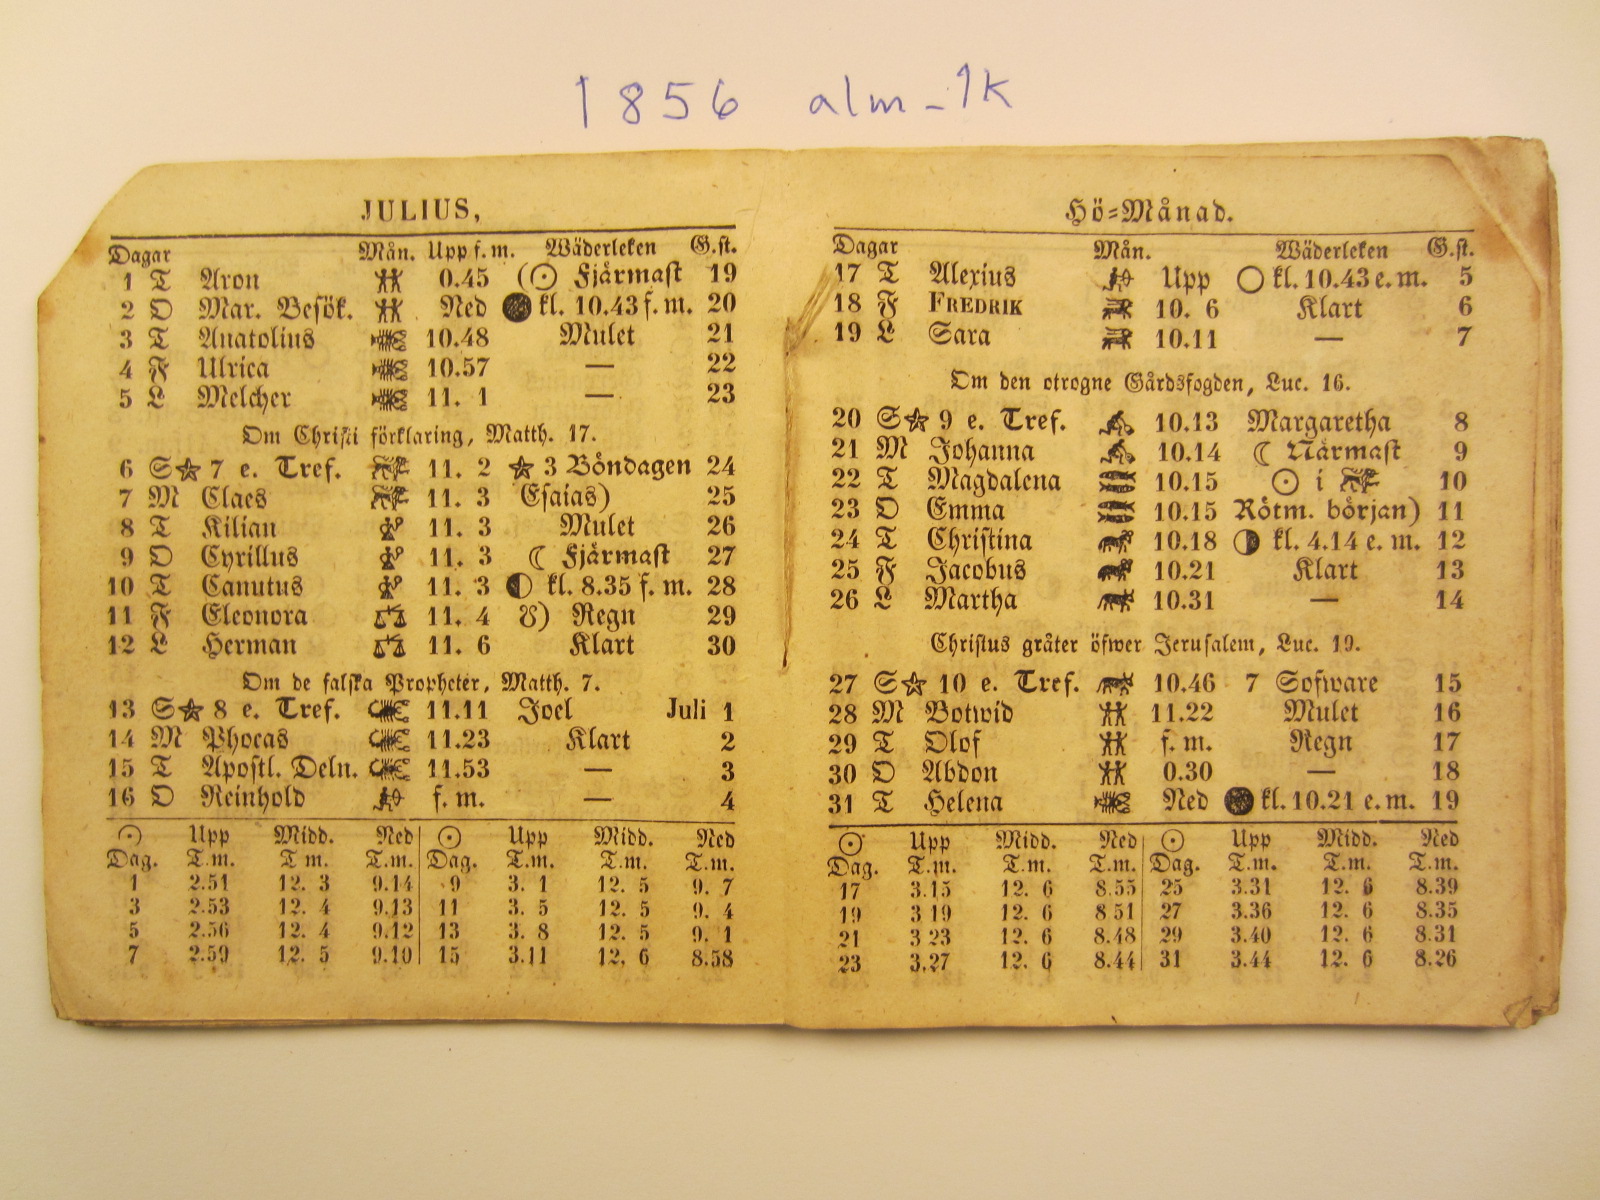 1856 alm-1k
JULIUS,
Dagar Mån. Upp f. m. Wäderleken G.st.
1 T Aron 0.45 (☉ Fjärmast 19
2 O Mar. Besök. Ned ● kl. 10.43 f. m. 20
3 T Anatolius 10.48 Mulet 21
4 F Ulrica 10.57 — 22
5 L Melcher 11. 1 — 23
Om Christi förklaring, Matth. 17.
6 S☆ 7 e. Tref. 11. 2 ☆ 3 Böndagen 24
7 M Claes 11. 3 Esaias) 25
8 T Kilian 11. 3 Mulet 26
9 O Cyrillus 11. 3 ☾ Fjärmast 27
10 T Canutus 11. 3 ◐ kl. 8.35 f. m. 28
11 F Eleonora 11. 4 ☋) Regn 29
12 L Herman 11. 6 Klart 30
Om de falska Propheter, Matth. 7.
13 S☆ 8 e. Tref. 11.11 Joel Juli 1
14 M Phocas 11.23 Klart 2
15 T Apostl. Deln. 11.53 — 3
16 O Reinhold f. m. — 4
☉ Upp Midd. Ned ☉ Upp Midd. Ned
Dag. T.m. T m. T.m. Dag. T.m. T.m. T.m.
1 2.51 12. 3 9.14 9 3. 1 12. 5 9. 7
3 2.53 12. 4 9.13 11 3. 5 12. 5 9. 4
5 2.56 12. 4 9.12 13 3. 8 12. 5 9. 1
7 2.59 12. 5 9.10 15 3.11 12. 6 8.58
Hö-Månad.
Dagar Mån. Wäderleken G.st.
17 T Alexius Upp ○ kl. 10.43 e. m. 5
18 F FREDRIK 10. 6 Klart 6
19 L Sara 10.11 — 7
Om den otrogne Gårdsfogden, Luc. 16.
20 S☆ 9 e. Tref. 10.13 Margaretha 8
21 M Johanna 10.14 ☾ Närmast 9
22 T Magdalena 10.15 ☉ i ♌ 10
23 O Emma 10.15 Rötm. början) 11
24 T Christina 10.18 ◑ kl. 4.14 e. m. 12
25 F Jacobus 10.21 Klart 13
26 L Martha 10.31 — 14
Christus gråter öfwer Jerusalem, Luc. 19.
27 S☆ 10 e. Tref. 10.46 7 Sofware 15
28 M Botwid 11.22 Mulet 16
29 T Olof f. m. Regn 17
30 O Abdon 0.30 — 18
31 T Helena Ned ● kl. 10.21 e. m. 19
☉ Upp Midd. Ned ☉ Upp Midd. Ned
Dag. T.m. T.m. T.m. Dag. T.m. T.m. T.m.
17 3.15 12. 6 8.55 25 3.31 12. 6 8.39
19 3 19 12. 6 8 51 27 3.36 12. 6 8.35
21 3 23 12. 6 8.48 29 3.40 12. 6 8.31
23 3.27 12. 6 8.44 31 3.44 12. 6 8.26